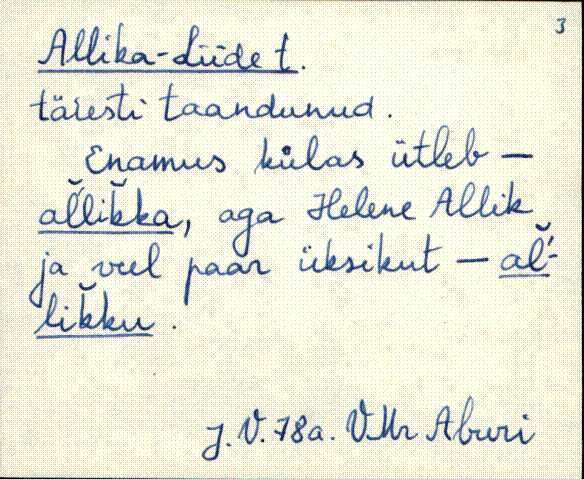 3
Allika-Liide t.
täiesti taandunud.
Enamus külas ütleb –
al̆likka, aga Helene Allik
ja veel paar üksikut – al̆'-
likku.
J.V. 78a. VMr Aburi